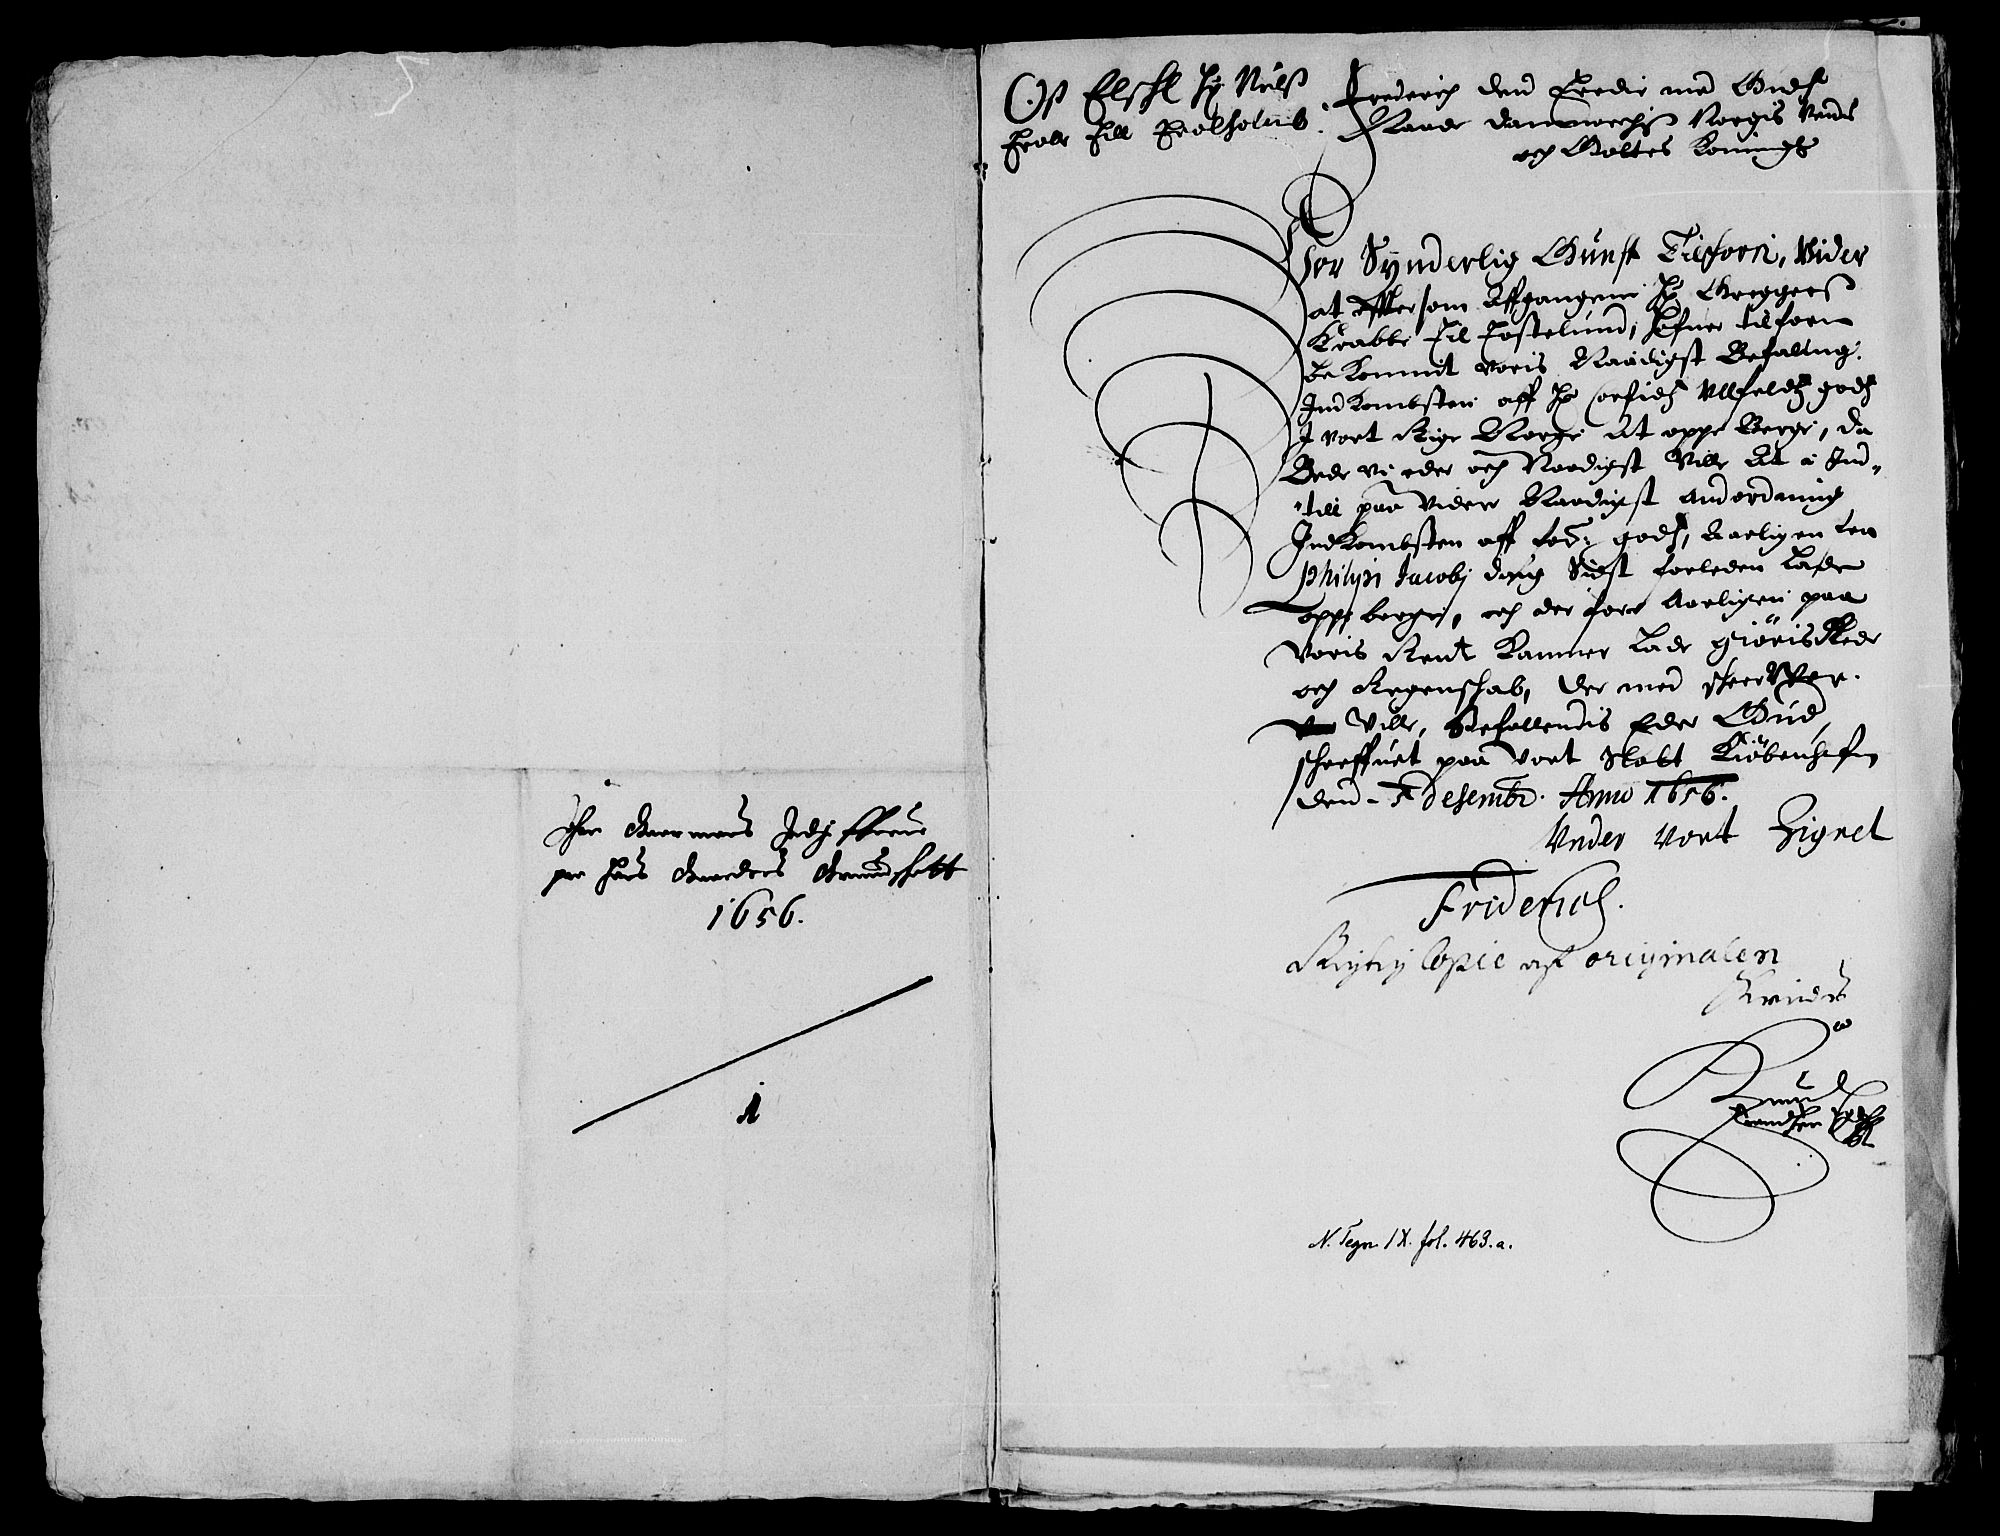 1656.
1
Os Elschl Hr Nielss
Trolle Till Trolholmb.
Frederich den Tredie med Guds
Naade Danmarchis Norgis Vends
och Gottes Konning
Vor Synderlig Gunst Tilforn, Vider
at effter som Affgangene Hr Greggers
Krabbe Til Tostelund, hafuer tilforn
bekommit voris Naadigst Befalling,
Indkombsten aff Hr Corfidz Ulfeldtz godz
I vort Rige Norge At oppe Berge, da
Bede vi eder och Naadigst Ville At i Ind-
till paa videre Naadigst Andordning
Indkombsten aff godz, Aarligen fra
Philipi Jacobj dag Sidst forleden Lader
oppeberge, och der fore Aarligen paa
Voris Rente Kammer Lade giøris Rede
och Regenschab, der med scheer Vor
Ville, Befallendis Eder Gud,
schreffuet paa Vort Slott Kiøbenhafn
den 5 Desembr. Anno 1656.
Under Vort Zignet
Friderich.
Rigtig Copie af originalen
Knud
N. Tegn. IX. fol. 463. a.